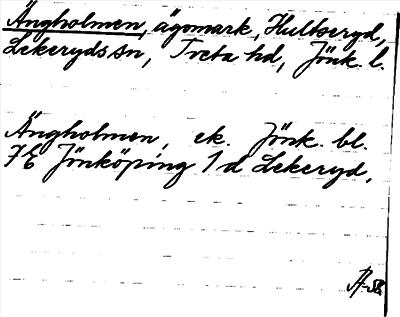 Ängholmen, ägomark, Hultseryd,
Lekeryds sn, Tveta hd, Jönk. l.
Ängholmen, ek. Jönk. bl.
7E Jönköping 1d Lekeryd.